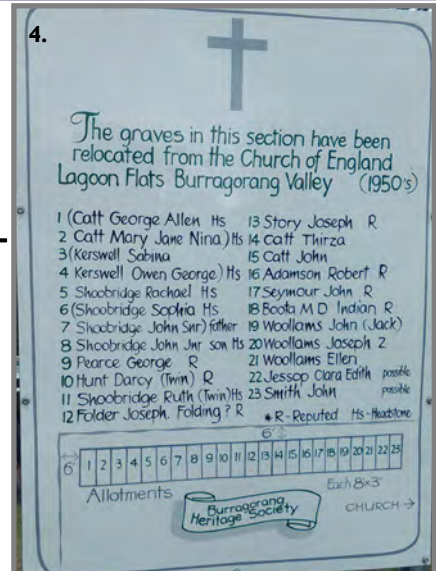 4.
The graves in this section have been
relocated from the Church of England
Lagoon Flats Burragorang Valley (1950's)
1 (Catt George Allen Hs
2 Catt Mary Jane Nina) Hs
3 (Kerswell Sabina
4 Kerswell Owen George) Hs
5 Shoobridge Rachael Hs
6 (Shoobridge Sophia Hs
7 Shoobridge John Snr) father
8 Shoobridge John Jnr son Hs
9 Pearce George R
10 Hunt Darcy (Twin) R
11 Shoobridge Ruth (Twin) Hs
12 Folder Joseph. Folding? R
13 Story Joseph R
14 Catt Thirza
15 Catt John
16 Adamson Robert R
17 Seymour John R
18 Boota M D Indian R
19 Woollams John (Jack)
20 Woollams Joseph 2
21 Woollams Ellen
22 Jessop Clara Edith possible
23 Smith John possible
* R - Reputed Hs - Headstone
6'
6' 1 2 3 4 5 6 7 8 9 10 11 12 13 14 15 16 17 18 19 20 21 22 23
Allotments Each 8'x3'
Burragorang
Heritage Society
CHURCH →